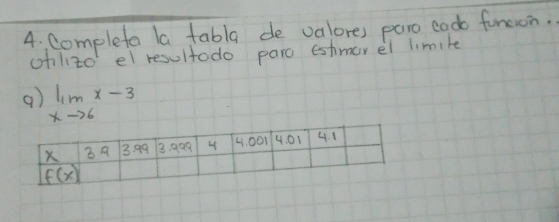 4. Completa la tabla de valores para cada función.
utilizo el resultado para estimar el limite
a) lim x - 3
x → 6
x 3.9 3.99 3.999 4 4.001 4.01 4.1
f(x)